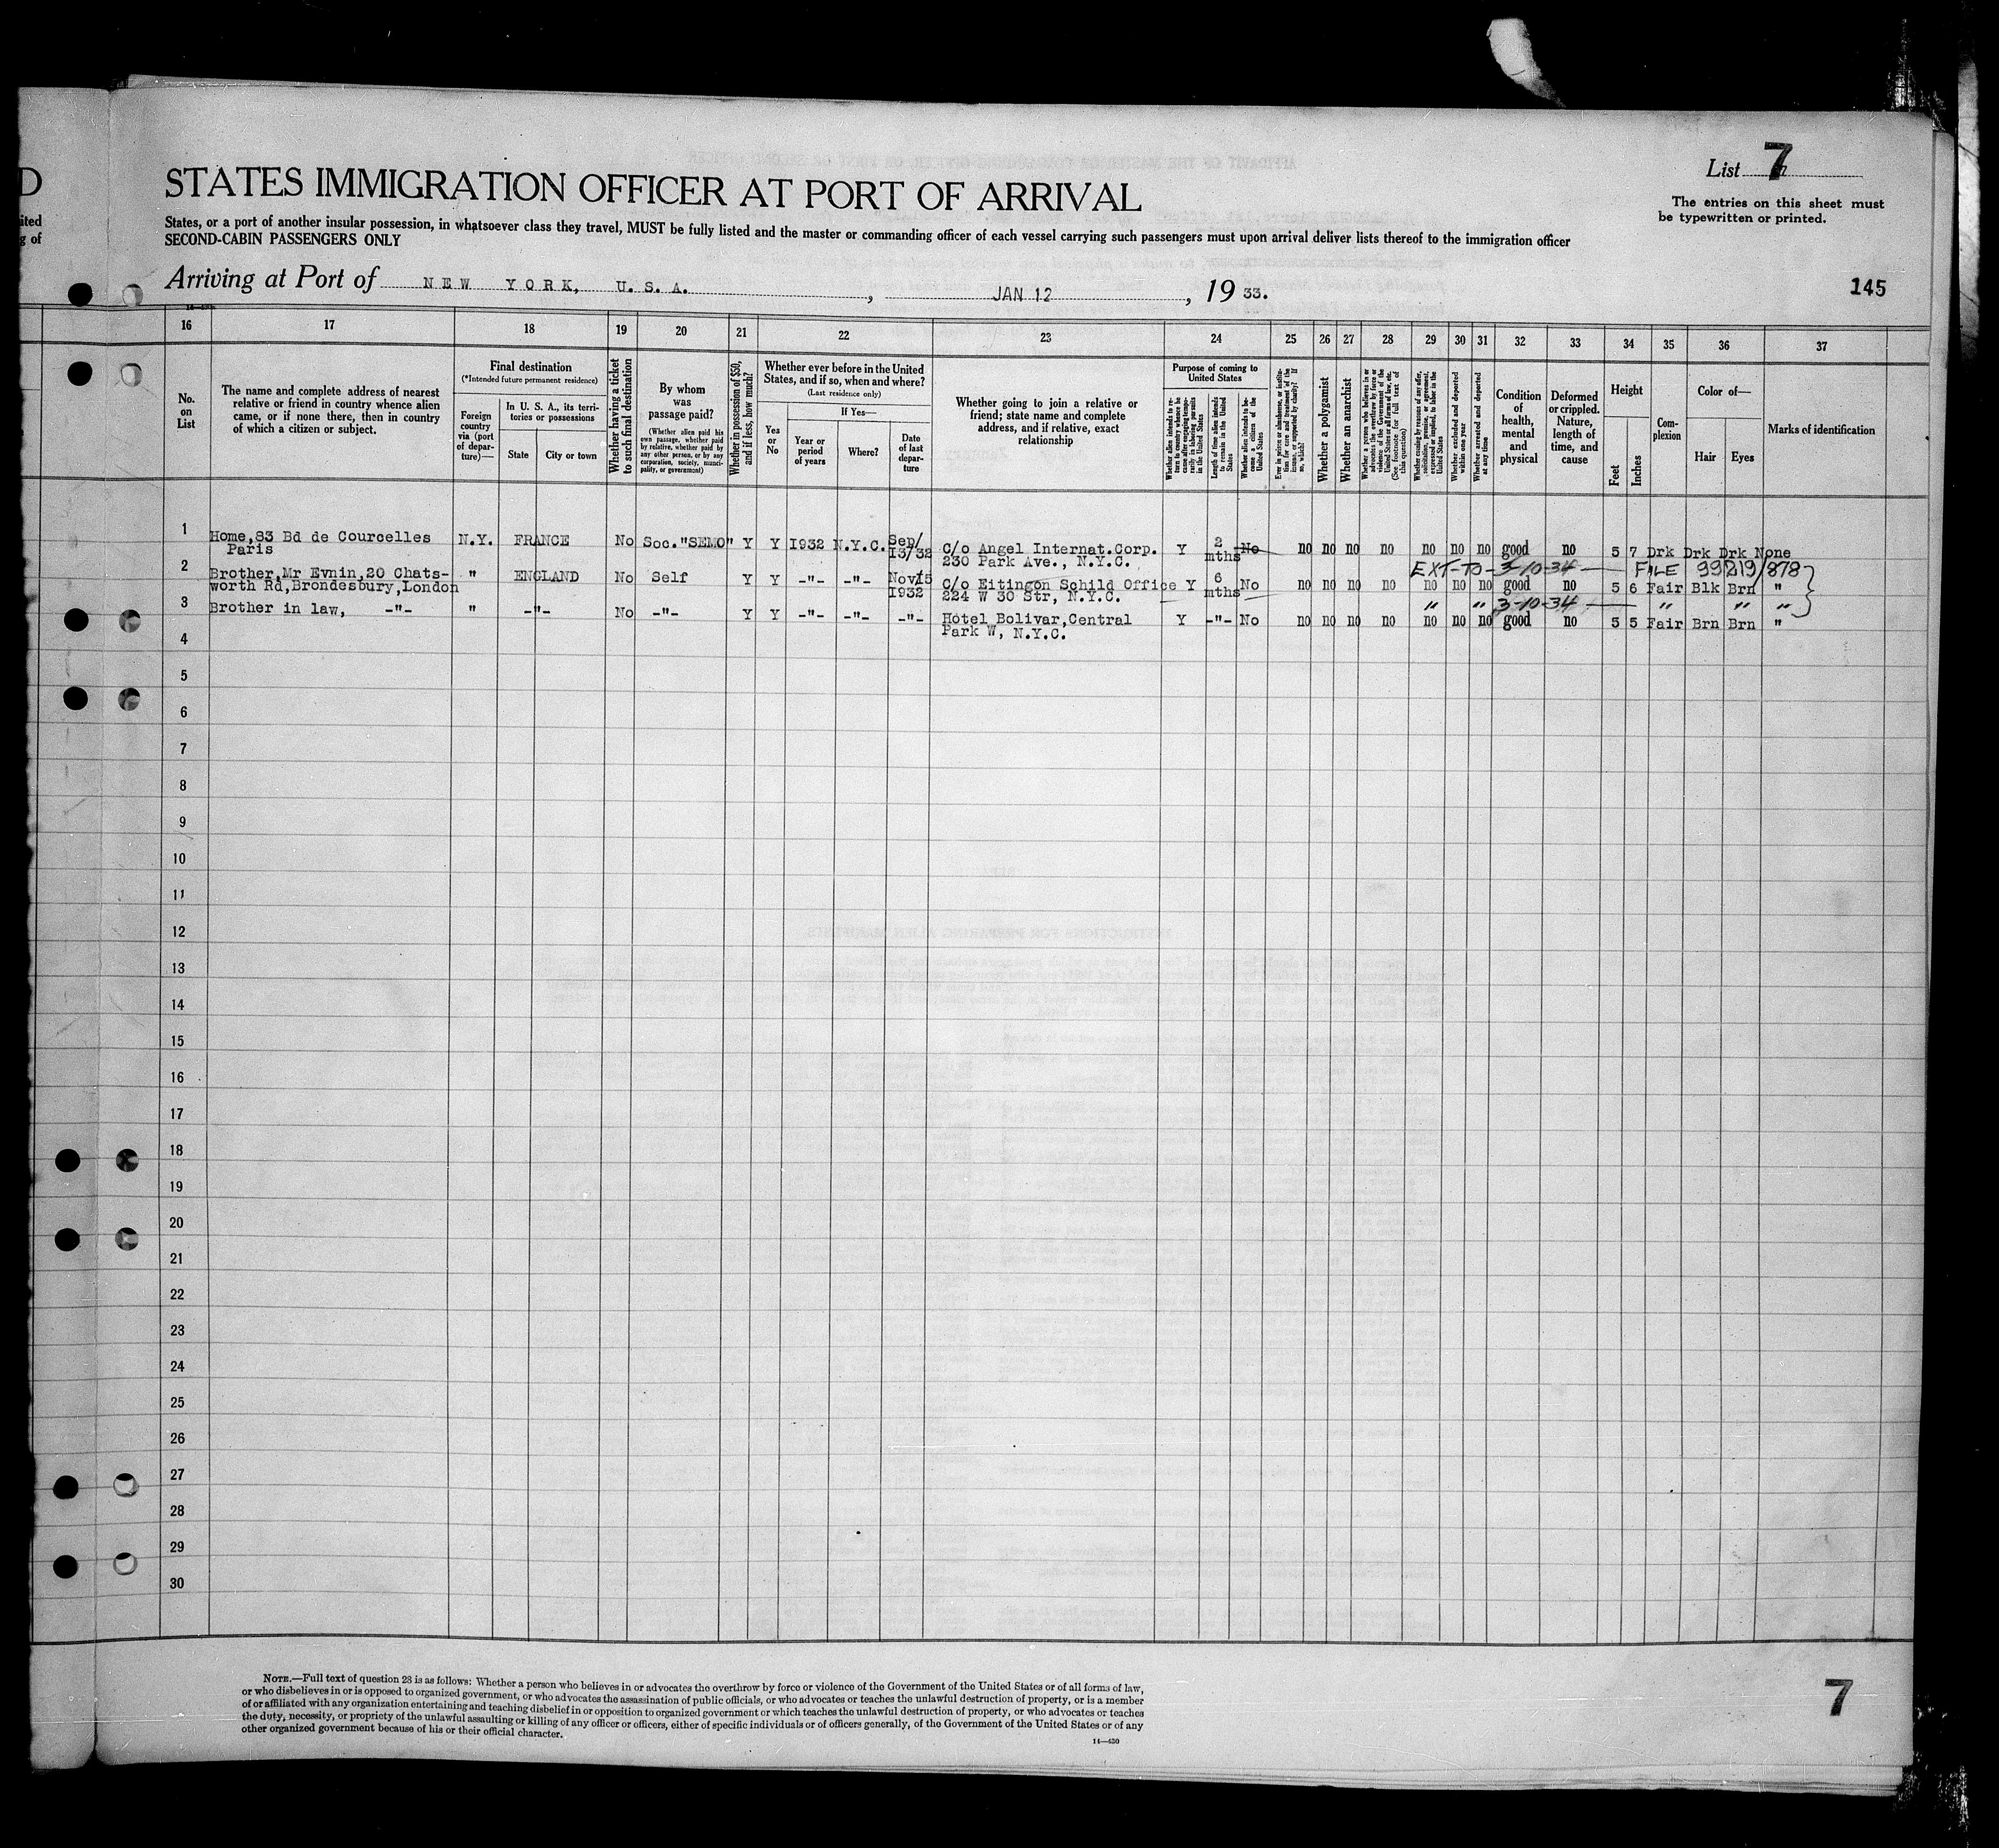 D
ited
g of
STATES IMMIGRATION OFFICER AT PORT OF ARRIVAL
List 7
The entries on this sheet must
be typewritten or printed.
States, or a port of another insular possession, in whatsoever class they travel, MUST be fully listed and the master or commanding officer of each vessel carrying such passengers must upon arrival deliver lists thereof to the immigration officer
SECOND-CABIN PASSENGERS ONLY
Arriving at Port of NEW YORK, U.S.A. , JAN 12 , 19 33.
145
16 17 18 19 20 21 22 23 24 25 26 27 28 29 30 31 32 33 34 35 36 37
No. on List
The name and complete address of nearest
relative or friend in country whence alien
came, or if none there, then in country
of which a citizen or subject.
Final destination
(*Intended future permanent residence)
Foreign country via (port of departure)—
In U. S. A., its territories or possessions
State
City or town
Whether having a ticket to such final destination
By whom was passage paid?
(Whether alien paid his own passage, whether paid by relative, whether paid by any other person, or by any corporation, society, municipality, or government)
Whether in possession of $50, and if less, how much?
Whether ever before in the United
States, and if so, when and where?
(Last residence only)
Yes or No
If Yes—
Year or period of years
Where?
Date of last departure
Whether going to join a relative or
friend; state name and complete
address, and if relative, exact
relationship
Purpose of coming to United States
Whether alien intends to return to country whence he came after engaging temporarily in laboring pursuits in the United States
Length of time alien intends to remain in the United States
Whether alien intends to become a citizen of the United States
Ever in prison or almshouse, or institution for care and treatment of the insane, or supported by charity? If so, which?
Whether a polygamist
Whether an anarchist
Whether a person who believes in or advocates the overthrow by force or violence of the Government of the United States or all forms of law, etc. (See footnote for full text of this question)
Whether coming by reason of any offer, solicitation, promise, or agreement, expressed or implied, to labor in the United States
Whether excluded and deported within one year
Whether arrested and deported at any time
Condition of health, mental and physical
Deformed or crippled. Nature, length of time, and cause
Height
Feet
Inches
Complexion
Color of—
Hair
Eyes
Marks of identification
1 Home,83 Bd de Courcelles N.Y. FRANCE No Soc."SEMO" Y Y 1932 N.Y.C. Sep/ C/o Angel Internat.Corp. Y 2 No no no no no no no no good no 5 7 Drk Drk Drk None
Paris 13/32 230 Park Ave., N.Y.C. mths
EXT-TO-3-10-34 — FILE 99219/878
2 Brother,Mr Evnin,20 Chats- " ENGLAND No Self Y Y -"- -"- Nov/15 C/o Eitingon Schild Office Y 6 No no no no no no no no good no 5 6 Fair Blk Brn "
worth Rd,Brondesbury,London 1932 224 W 30 Str, N.Y.C. mths
" " 3-10-34 — " " "
3 Brother in law, -"- " -"- No -"- Y Y -"- -"- -"- Hotel Bolivar,Central Y -"- No no no no no no no no good no 5 5 Fair Brn Brn "
Park W, N.Y.C.
4
5
6
7
8
9
10
11
12
13
14
15
16
17
18
19
20
21
22
23
24
25
26
27
28
29
30
NOTE.—Full text of question 28 is as follows: Whether a person who believes in or advocates the overthrow by force or violence of the Government of the United States or of all forms of law,
or who disbelieves in or is opposed to organized government, or who advocates the assassination of public officials, or who advocates or teaches the unlawful destruction of property, or is a member
of or affiliated with any organization entertaining and teaching disbelief in or opposition to organized government or which teaches the unlawful destruction of property, or who advocates or teaches
the duty, necessity, or propriety of the unlawful assaulting or killing of any officer or officers, either of specific individuals or of officers generally, of the Government of the United States or of any
other organized government because of his or their official character.
14—430
7